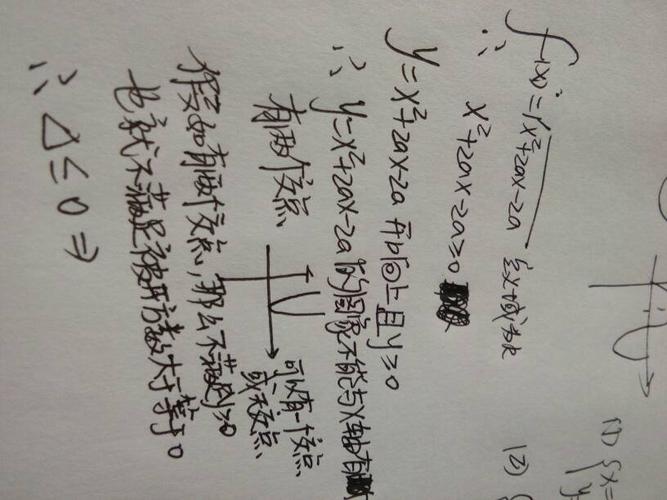 f(x)=√x²+2ax-2a 定义域为R
∴ x²+2ax-2a≥0
y=x²+2ax-2a 开口向上且y≥0
∴ y=x²+2ax-2a的图像不能与x轴有
有两个交点
可以有一个交点
或无交点
假如有两个交点，那么不满足y≥0
也就不满足被开方数大于等于0
∴ Δ≤0⇒
(1)
(2)